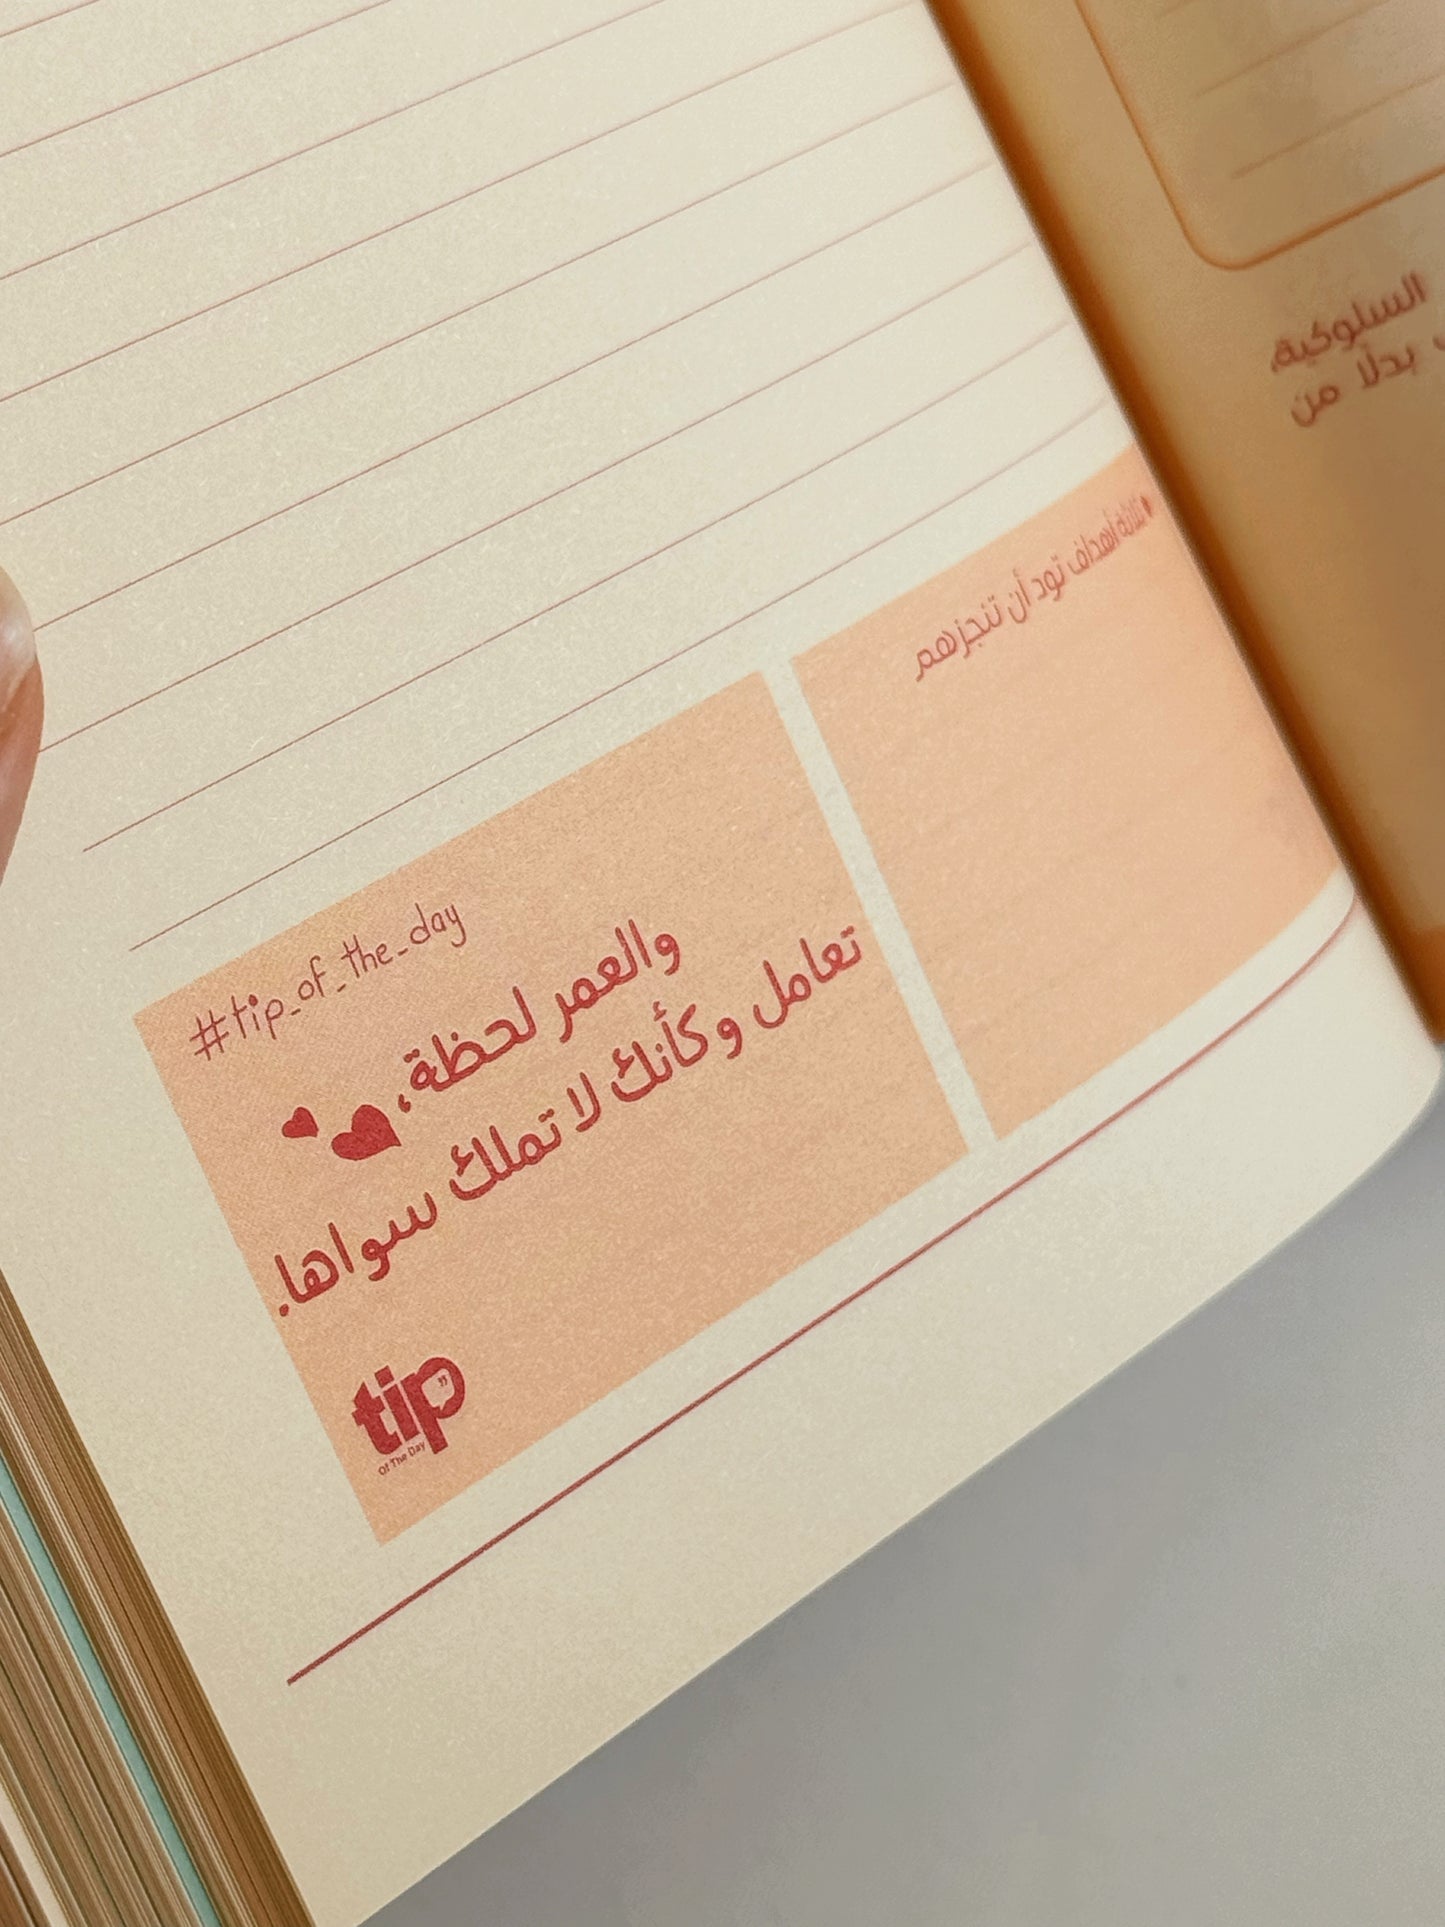 السلوكية،
بدلًا من
ثلاثة أهداف تود أن تنجزهم
#tip_of_the_day
والعمر لحظة،
تعامل وكأنك لا تملك سواها.
tip
Of The Day